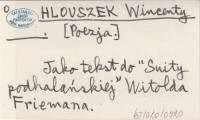 HŁOUSZEK Wincenty
. [Poezja.]
Jako tekst do "Suity
podhalańskiej" Witolda
Friemana.